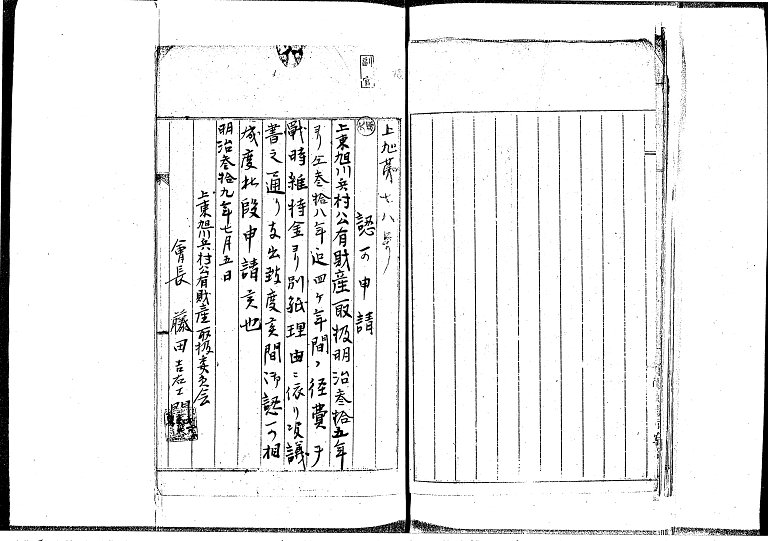 上旭第七八号
認可申請
上東旭川兵村公有財産取扱明治参拾五年
ヨリ仝参拾八年迄四ヶ年間ノ経費ヲ
戦時維持金ヨリ別紙理由ニ依リ決議
書之通リ支出致度候間御認可相
成度此段申請候也
明治参拾九年七月五日
上東旭川兵村公有財産取扱委員会
會長 藤田吉右エ門